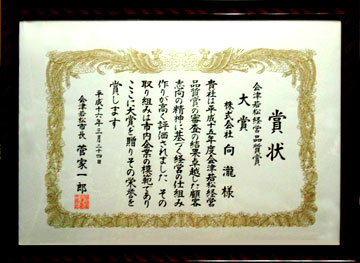 賞状
会津若松経営品質賞
大賞
株式会社 向瀧様
貴社は平成十五年度会津若松経営
品質賞の審査の結果卓越した顧客
志向の精神に基づく経営の仕組み
作りが高く評価されました その
取り組みは市内企業の模範であり
ここに大賞を贈りその栄誉を
賞します
平成十六年三月二十四日
会津若松市長 菅家一郎